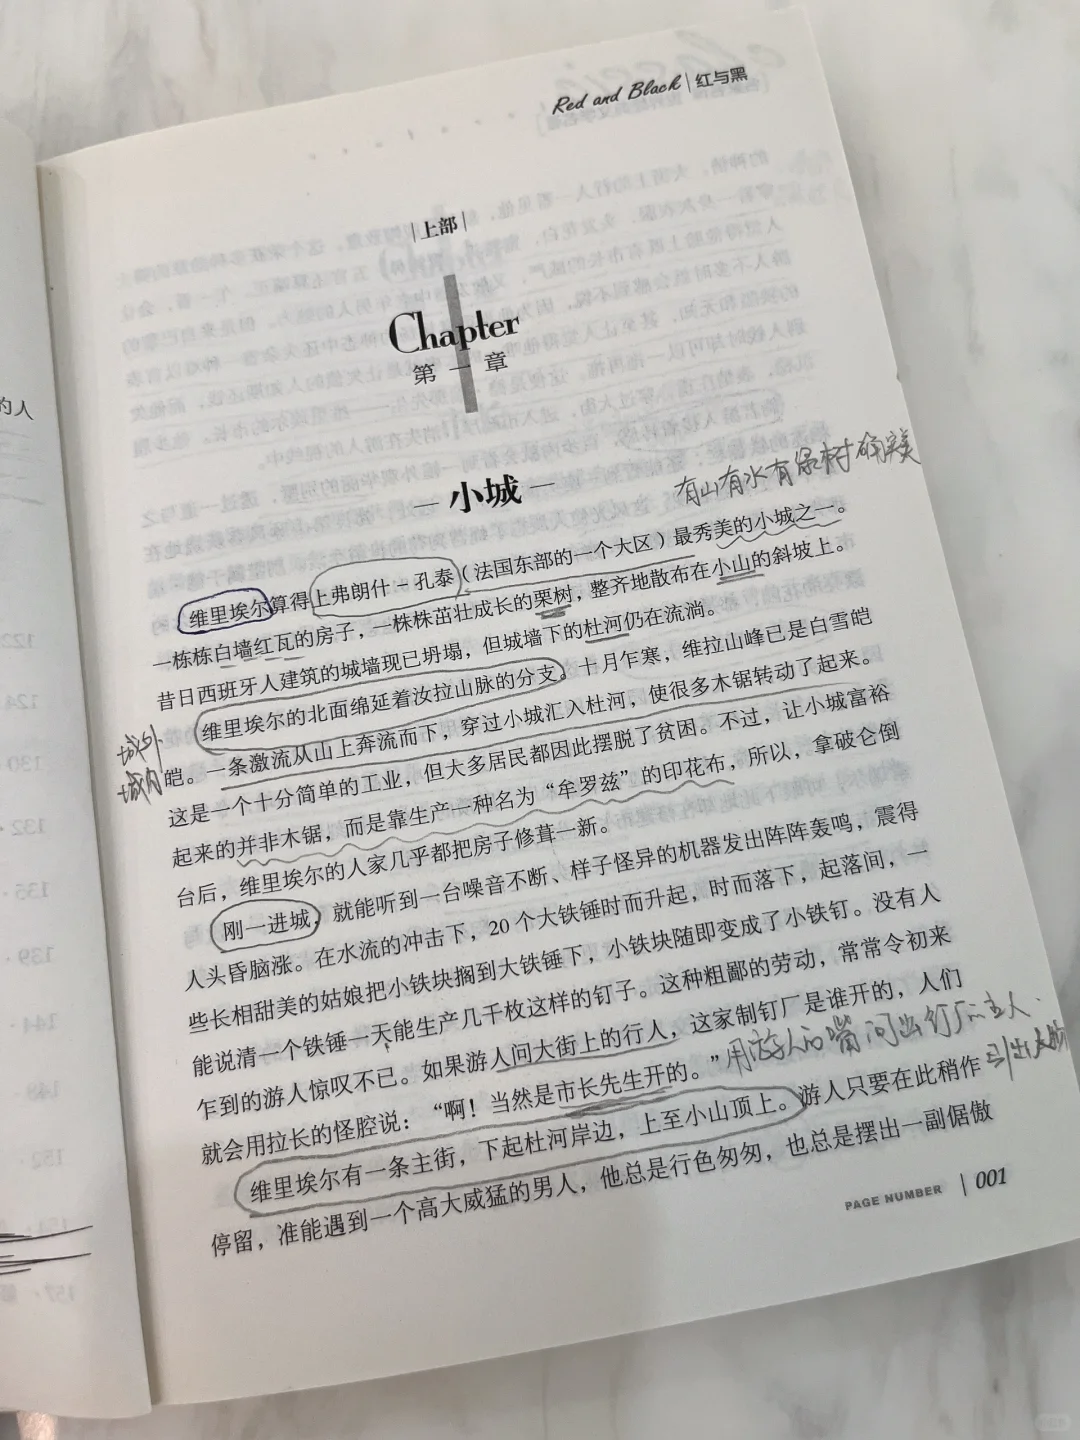 Red and Black | 红与黑
|上部|
Chapter
第一章
— 小城 —
有山有水有绿树 确实美
维里埃尔算得上弗朗什－孔泰（法国东部的一个大区）最秀美的小城之一。
一栋栋白墙红瓦的房子，一株株茁壮成长的栗树，整齐地散布在小山的斜坡上。
昔日西班牙人建筑的城墙现已坍塌，但城墙下的杜河仍在流淌。
维里埃尔的北面绵延着汝拉山脉的分支。十月乍寒，维拉山峰已是白雪皑
城外
城内
皑。一条激流从山上奔流而下，穿过小城汇入杜河，使很多木锯转动了起来。
这是一个十分简单的工业，但大多居民都因此摆脱了贫困。不过，让小城富裕
起来的并非木锯，而是靠生产一种名为“牟罗兹”的印花布，所以，拿破仑倒
台后，维里埃尔的人家几乎都把房子修葺一新。
刚一进城，就能听到一台噪音不断、样子怪异的机器发出阵阵轰鸣，震得
人头昏脑涨。在水流的冲击下，20个大铁锤时而升起，时而落下，起落间，一
些长相甜美的姑娘把小铁块搁到大铁锤下，小铁块随即变成了小铁钉。没有人
能说清一个铁锤一天能生产几千枚这样的钉子。这种粗鄙的劳动，常常令初来
乍到的游人惊叹不已。如果游人问大街上的行人，这家制钉厂是谁开的，人们
就会用拉长的怪腔说：“啊！当然是市长先生开的。”
用游人的嘴问出钉厂的主人
引出
维里埃尔有一条主街，下起杜河岸边，上至小山顶上。游人只要在此稍作
停留，准能遇到一个高大威猛的男人，他总是行色匆匆，也总是摆出一副倨傲
PAGE NUMBER | 001
的人
122
124
130
132
135
139
144
148
152
157